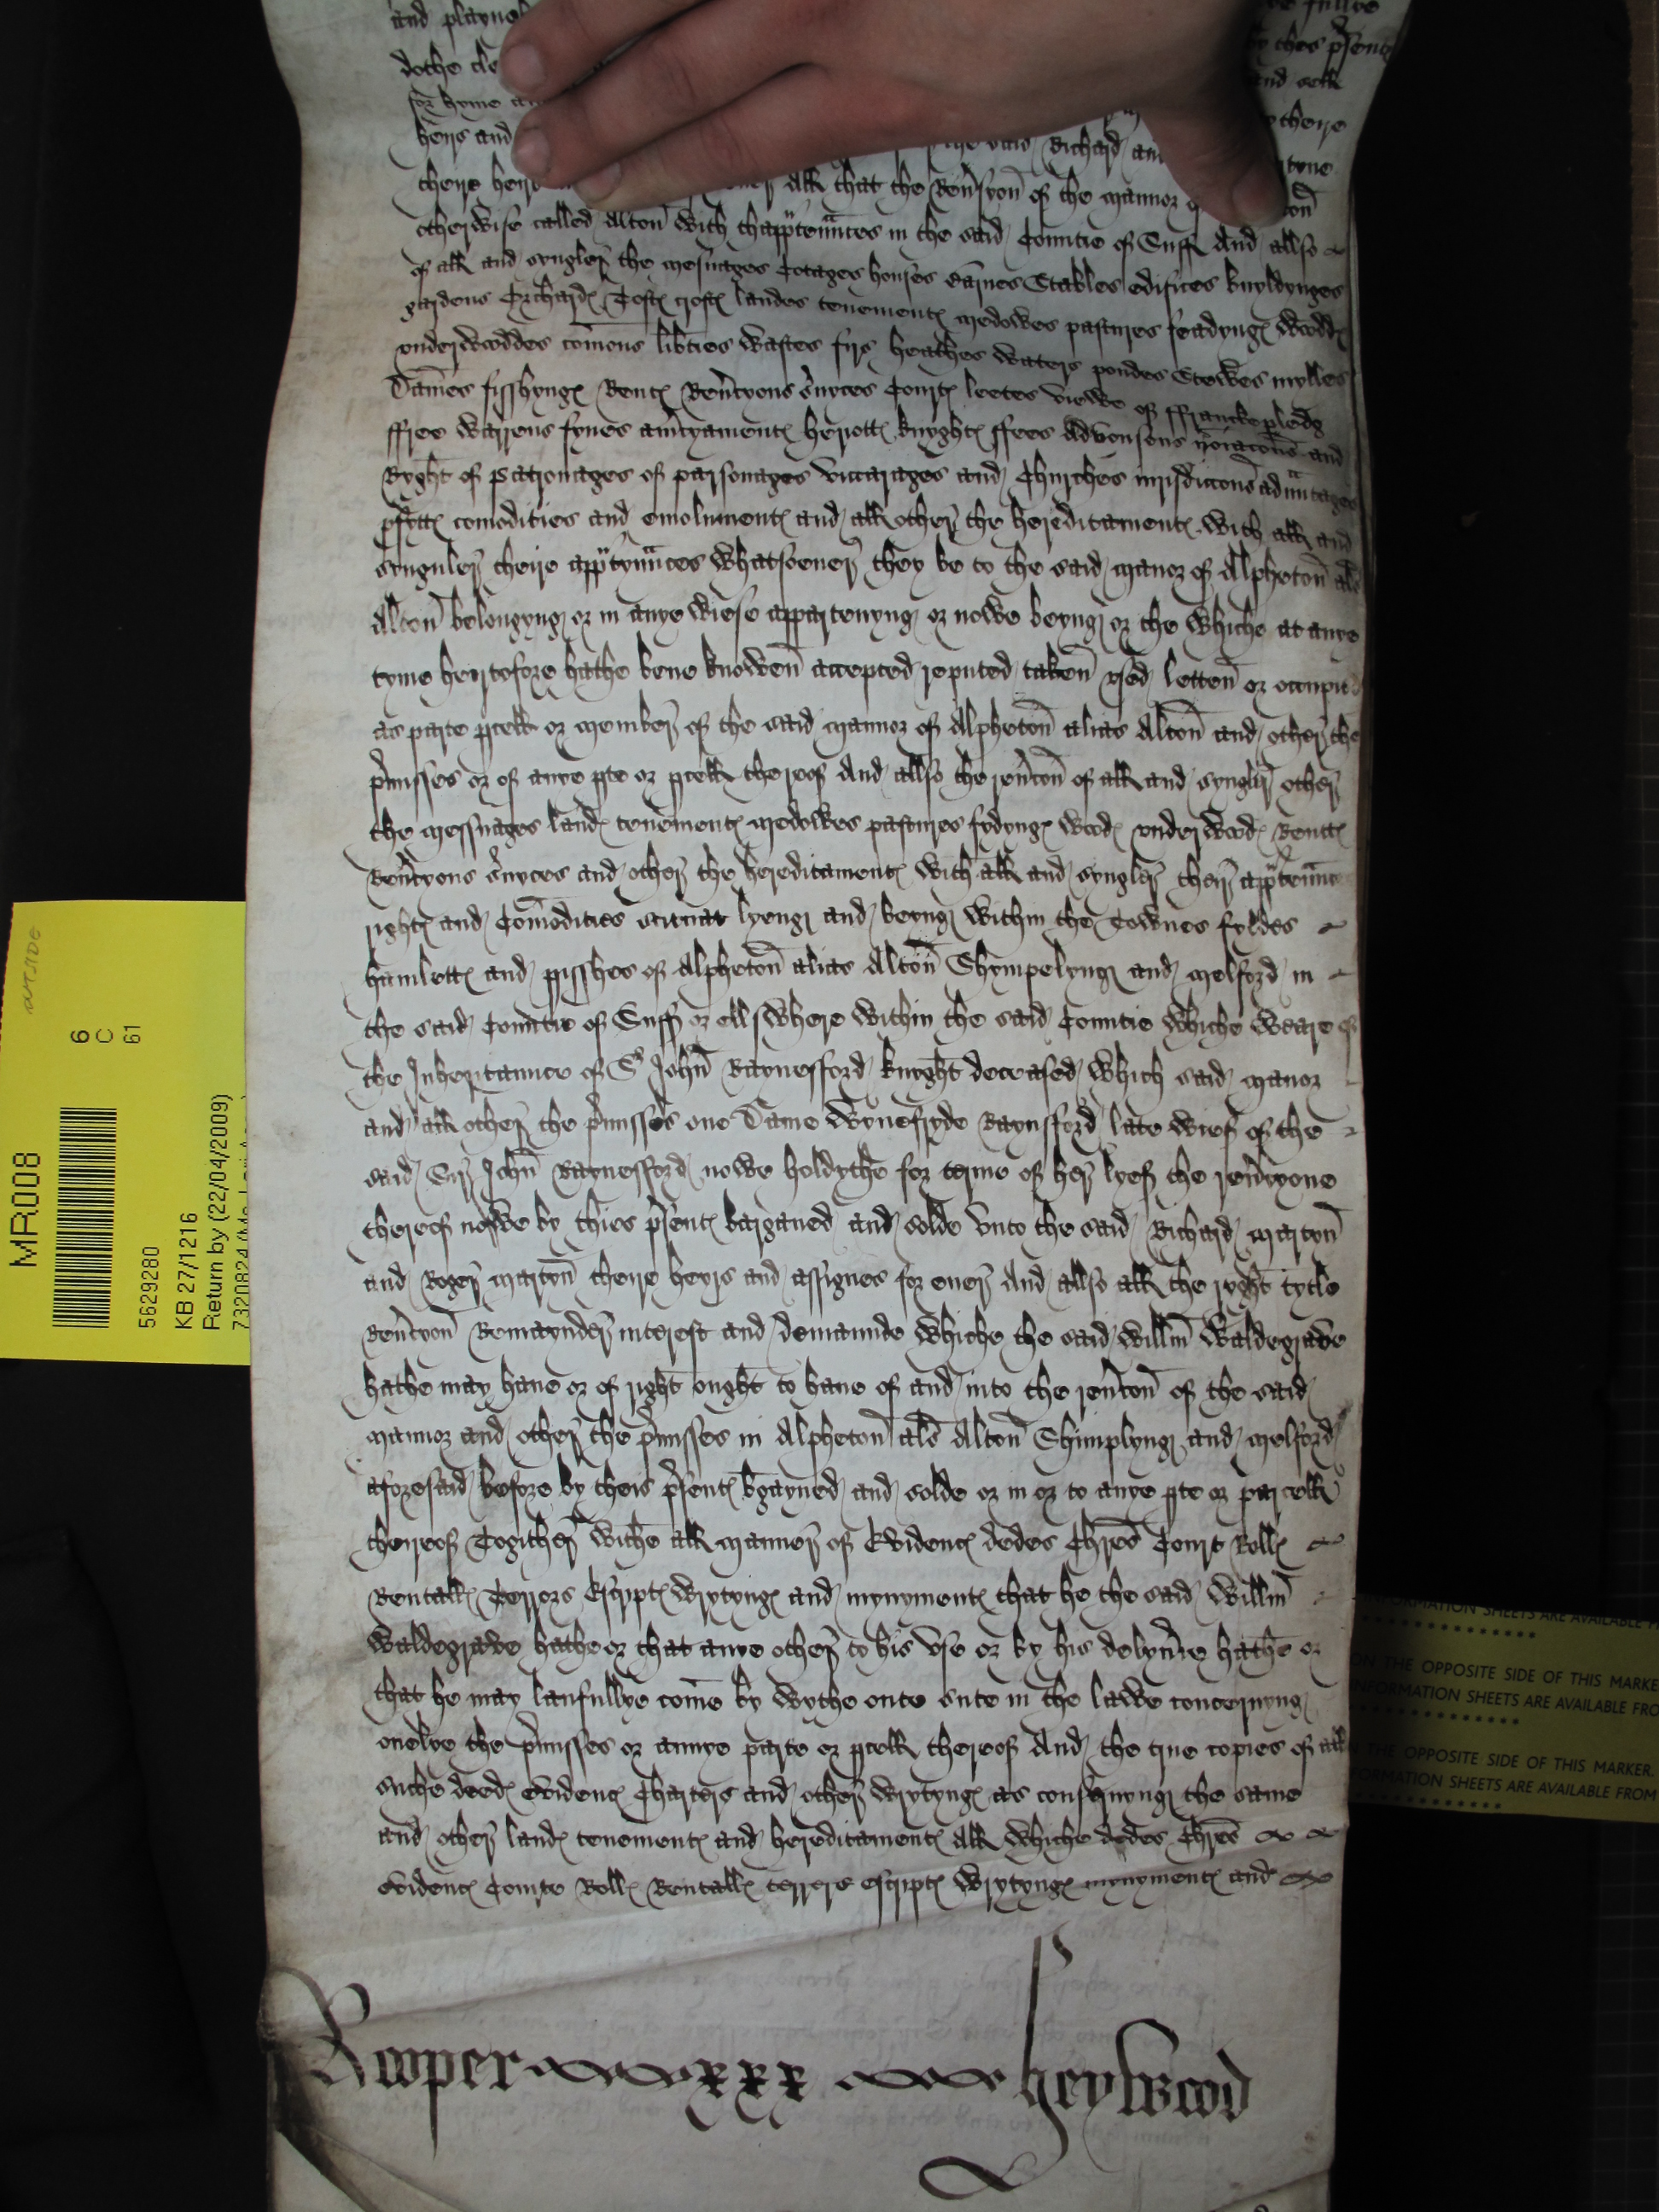 and playnel
dothe cle by thes p'sent
for hyme an and selle
heirs and the said Richard an to theire
theire heires all that the Reu'syon of the mannor of
otherwise called Alton with thapp'tennces in the said Countie of Suff And allso
of all and synguler the mesuages Cotages houses Barnes Stables edifices buyldynges
gardens Orchard Toft croft landes tenement medowes pastures feadyng Wodd
vnderwoddes comons lib'ties wastes firs heathes waters pondes Stewes mylles
Dames fisshyng Rent Reu'cyons s'uyces Court leetes viewe of ffranckepledg
ffree warrens fynes am'cyament heriott knyght ffees Advousons and
Ryght of Patronages of parsonages viccarages and Churches iurisdiccons aduntages
p'fitt comodities and emolument and all other the hereditament with all and
synguler theire app'tynnces whatsoeuer they be to the said manor of Alpheton als
Alton belongyng or in anye wiese appartenyng or nowe beyng or the whiche at anye
tyme heirtofore hathe bene knowen accepted reputed taken vsed letten or occupied
as parte p'cell or member of the said mannor of Alpheton alias Alton and other the
p'misses or of anye p'te or p'cell thereof And allso the reu'con of all and syngler other
the messuages land tenement medowes pastures fydyng wod vnderwod Rentt
Reu'cyons s'uyces and other the hereditament with all and syngler their app'tennce
right and Comodities scituat lyeng and beyng within the Townes fyldes
hamlett and p'isshes of Alpheton alias Alton Shympelyng and Melford in
the said Countie of Suff or ells where within the said Countie whiche weare of
the Inherytaunce of Sr John Raynesfford knyght deceased which said manor
and all other the p'misses one Dame Wynefryde Raynsfford late wief of the
said Sir John Raynesfford nowe holdythe for terme of her lyef the reu'cyone
thereof nowe by thies p'sent barganed and solde vnto the said Richard Marton
and Roger Martyn theire heyrs and assignes for euer And allso all the ryght tytle
Reu'cyon Remaynder interest and demaunde whiche the said Willm Waldegrave
hathe may haue or of right ought to haue of and into the reu'con of the said
mannor and other the p'misses in Alpheton als Alton Shimplyng and Melford
aforesaid before by theis p'sent b'gayned and solde or in or to anye p'te or parcell
theireof Togither withe all manner of Evidenc dedes Chres Court Roll
Rentall Terrors Escript wrytyng and mynyment that he the said Willm
Waldegrave hathe or that anye other to his vse or by his delyu're hathe or
that he may laufullye come by wythe oute sute in the lawe concernyng
onelye the p'misses or annye parte or p'cell thereof And the true copies of all
suche deed evidenc Charters and other wrytyng as consernyng the same
and other land tenement and hereditament All whiche dedes Chres
evidenc Courte Roll Rentall terrers escript wrytyng mynyment and
Rooper xxx heywood
outside
MR008
6
C
61
5629280
KB 27/1216
Return by (22/04/2009)
INFORMATION SHEETS ARE AVAILABLE
ON THE OPPOSITE SIDE OF THIS MARKE
INFORMATION SHEETS ARE AVAILABLE FRO
THE OPPOSITE SIDE OF THIS MARKER.
FORMATION SHEETS ARE AVAILABLE FROM